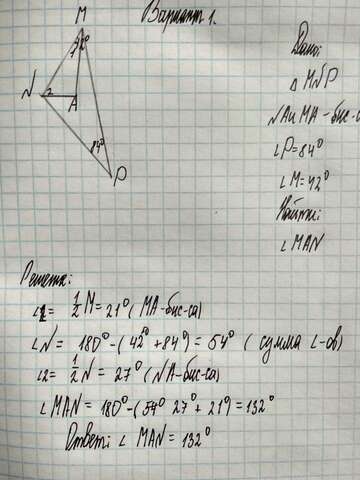 Вариант 1.
M
42°
N 2
A
84°
P
Дано:
△ MNP
NA и MA - бис-сы
∠P=84°
∠M=42°
Найти:
∠MAN
Решение:
∠1= 1/2 M=21° (MA-бис-са)
∠N= 180°-(42°+84°)=54° (сумма ∠-ов)
∠2= 1/2 N=27° (NA-бис-са)
∠MAN=180°-(54° 27°+21°)=132°
Ответ: ∠ MAN=132°